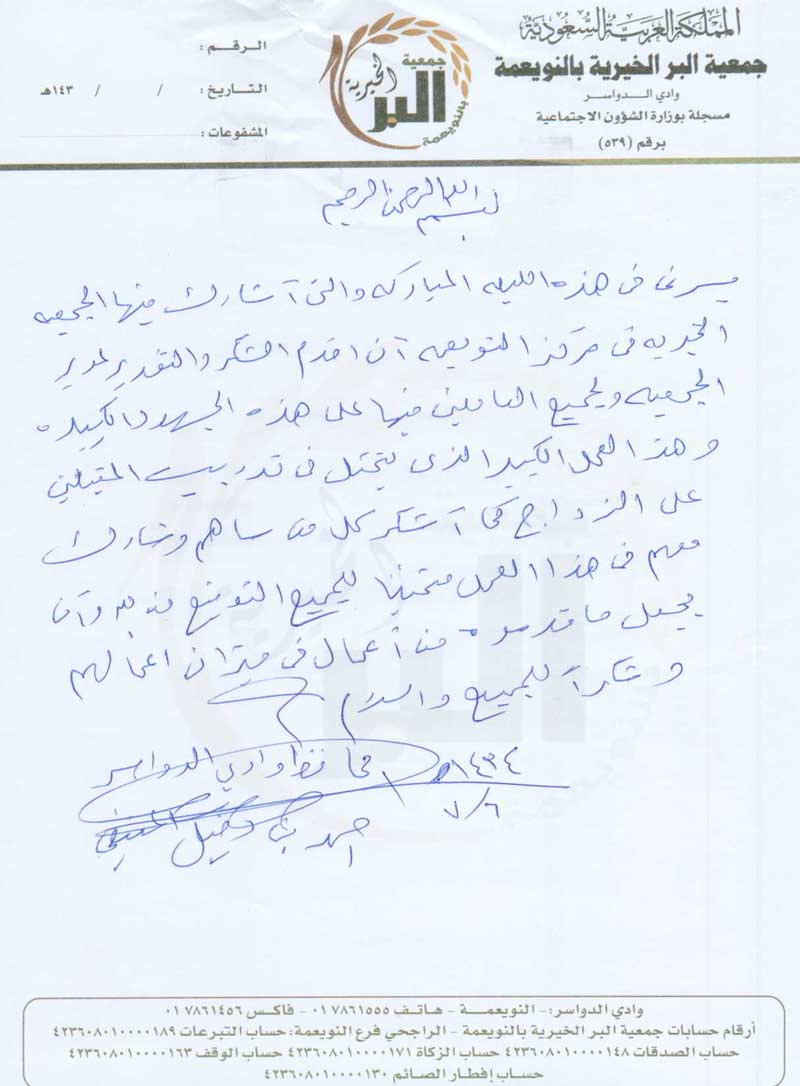 المملكة العربية السعودية
جمعية البر الخيرية بالنويعمة
وادي الدواسر
مسجلة بوزارة الشؤون الاجتماعية
برقم (٥٣٩)
جمعية
البر
الخيرية
بالنويعمة
الرقم :
التاريخ : / / ١٤٣هـ
المشفوعات :
بسم الله الرحمن الرحيم
يسرني في هذه الليله المباركه والتي أشارك فيها الجمعيه
الخيريه في مركز النويعمه أن اقدم الشكر والتقدير لمدير
الجمعيه ولجميع العاملين فيها على هذه الجهود الكبيره
وهذا العمل الكبير الذي يتمثل في تدريب المقبلين
على الزواج كما أشكر كل من ساهم وشارك
معهم في هذا العمل متمنياً للجميع التوفيق من الله وأن
يجعل ما قدموه من أعمال في ميزان اعمالهم
وشكراً للجميع والسلام
محافظ وادي الدواسر
١٤٣٤هـ
٧/٦
احمد بن دخيل
وادي الدواسر:- النويعمة - هاتف ٠١٧٨٦١٥٥٥ - فاكس ٠١٧٨٦١٤٥٦
أرقام حسابات جمعية البر الخيرية بالنويعمة - الراجحي فرع النويعمة: حساب التبرعات ٤٢٣٦٠٨٠١٠٠٠٠١٨٩
حساب الصدقات ٤٢٣٦٠٨٠١٠٠٠٠١٤٨ حساب الزكاة ٤٢٣٦٠٨٠١٠٠٠٠١٧١ حساب الوقف ٤٢٣٦٠٨٠١٠٠٠٠١٦٣
حساب إفطار الصائم ٤٢٣٦٠٨٠١٠٠٠٠١٣٠